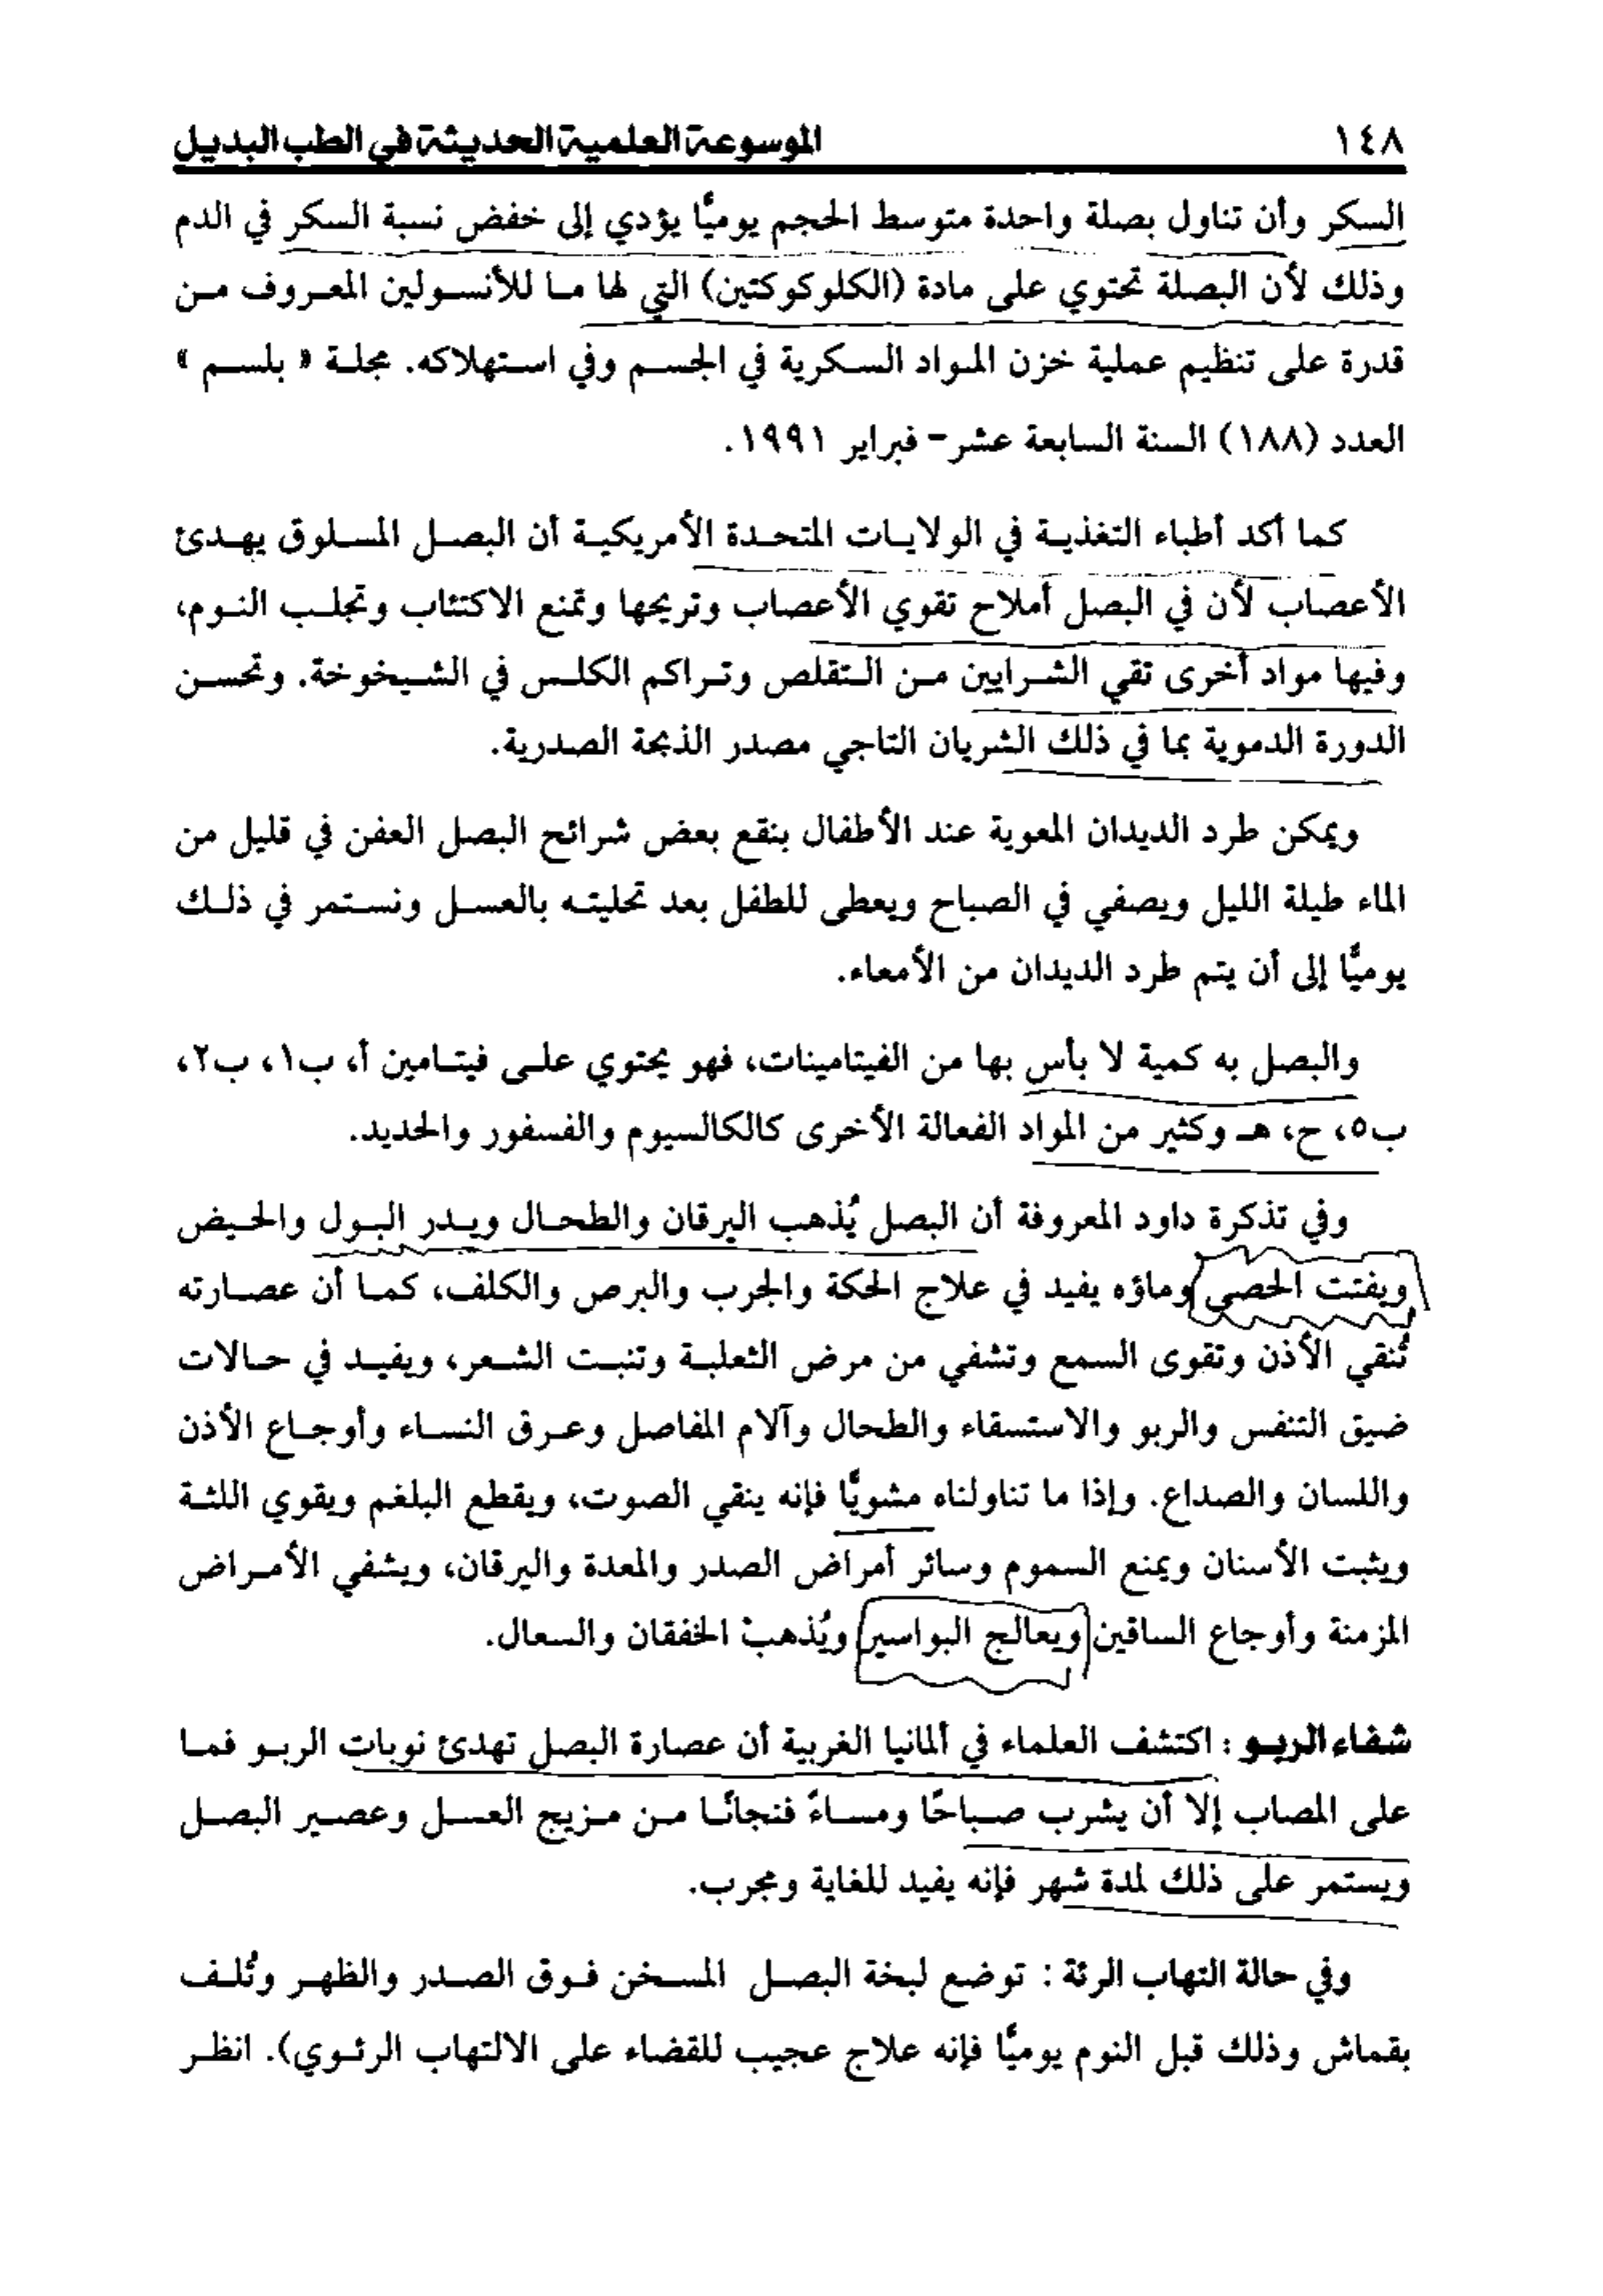 ١٤٨ الموسوعة العلمية الحديثة في الطب البديل
السكر وأن تناول بصلة واحدة متوسط الحجم يوميًّا يؤدي إلى خفض نسبة السكر في الدم
وذلك لأن البصلة تحتوي على مادة (الكلوكوكتين) التي لها ما للأنسولين المعروف من
قدرة على تنظيم عملية خزن المواد السكرية في الجسم وفي استهلاكه. مجلة « بلسم »
العدد (١٨٨) السنة السابعة عشر- فبراير ١٩٩١.
كما أكد أطباء التغذية في الولايات المتحدة الأمريكية أن البصل المسلوق يهدئ
الأعصاب لأن في البصل أملاح تقوي الأعصاب وتريحها وتمنع الاكتئاب وتجلب النوم،
وفيها مواد أخرى تقي الشرايين من التقلص وتراكم الكلس في الشيخوخة. وتحسن
الدورة الدموية بما في ذلك الشريان التاجي مصدر الذبحة الصدرية.
ويمكن طرد الديدان المعوية عند الأطفال بنقع بعض شرائح البصل العفن في قليل من
الماء طيلة الليل ويصفي في الصباح ويعطى للطفل بعد تحليته بالعسل ونستمر في ذلك
يوميًّا إلى أن يتم طرد الديدان من الأمعاء.
والبصل به كمية لا بأس بها من الفيتامينات، فهو يحتوي على فيتامين أ، ب١، ب٢،
ب٥، ح، هـ وكثير من المواد الفعالة الأخرى كالكالسيوم والفسفور والحديد.
وفي تذكرة داود المعروفة أن البصل يُذهب اليرقان والطحال ويدر البول والحيض
ويفتت الحصى وماؤه يفيد في علاج الحكة والجرب والبرص والكلف، كما أن عصارته
تُنقي الأذن وتقوى السمع وتشفي من مرض الثعلبة وتنبت الشعر، ويفيد في حالات
ضيق التنفس والربو والاستسقاء والطحال وآلام المفاصل وعرق النساء وأوجاع الأذن
واللسان والصداع. وإذا ما تناولناه مشويًّا فإنه ينقي الصوت، ويقطع البلغم ويقوي اللثة
ويثبت الأسنان ويمنع السموم وسائر أمراض الصدر والمعدة واليرقان، ويشفي الأمراض
المزمنة وأوجاع الساقين ويعالج البواسير ويُذهبْ الخفقان والسعال.
شفاء الربو : اكتشف العلماء في ألمانيا الغربية أن عصارة البصل تهدئ نوبات الربو فما
على المصاب إلا أن يشرب صباحًا ومساءً فنجانًا من مزيج العسل وعصير البصل
ويستمر على ذلك لمدة شهر فإنه يفيد للغاية ومجرب.
وفي حالة التهاب الرئة : توضع لبخة البصل المسخن فوق الصدر والظهر وتُلف
بقماش وذلك قبل النوم يوميًّا فإنه علاج عجيب للقضاء على الالتهاب الرئوي). انظر